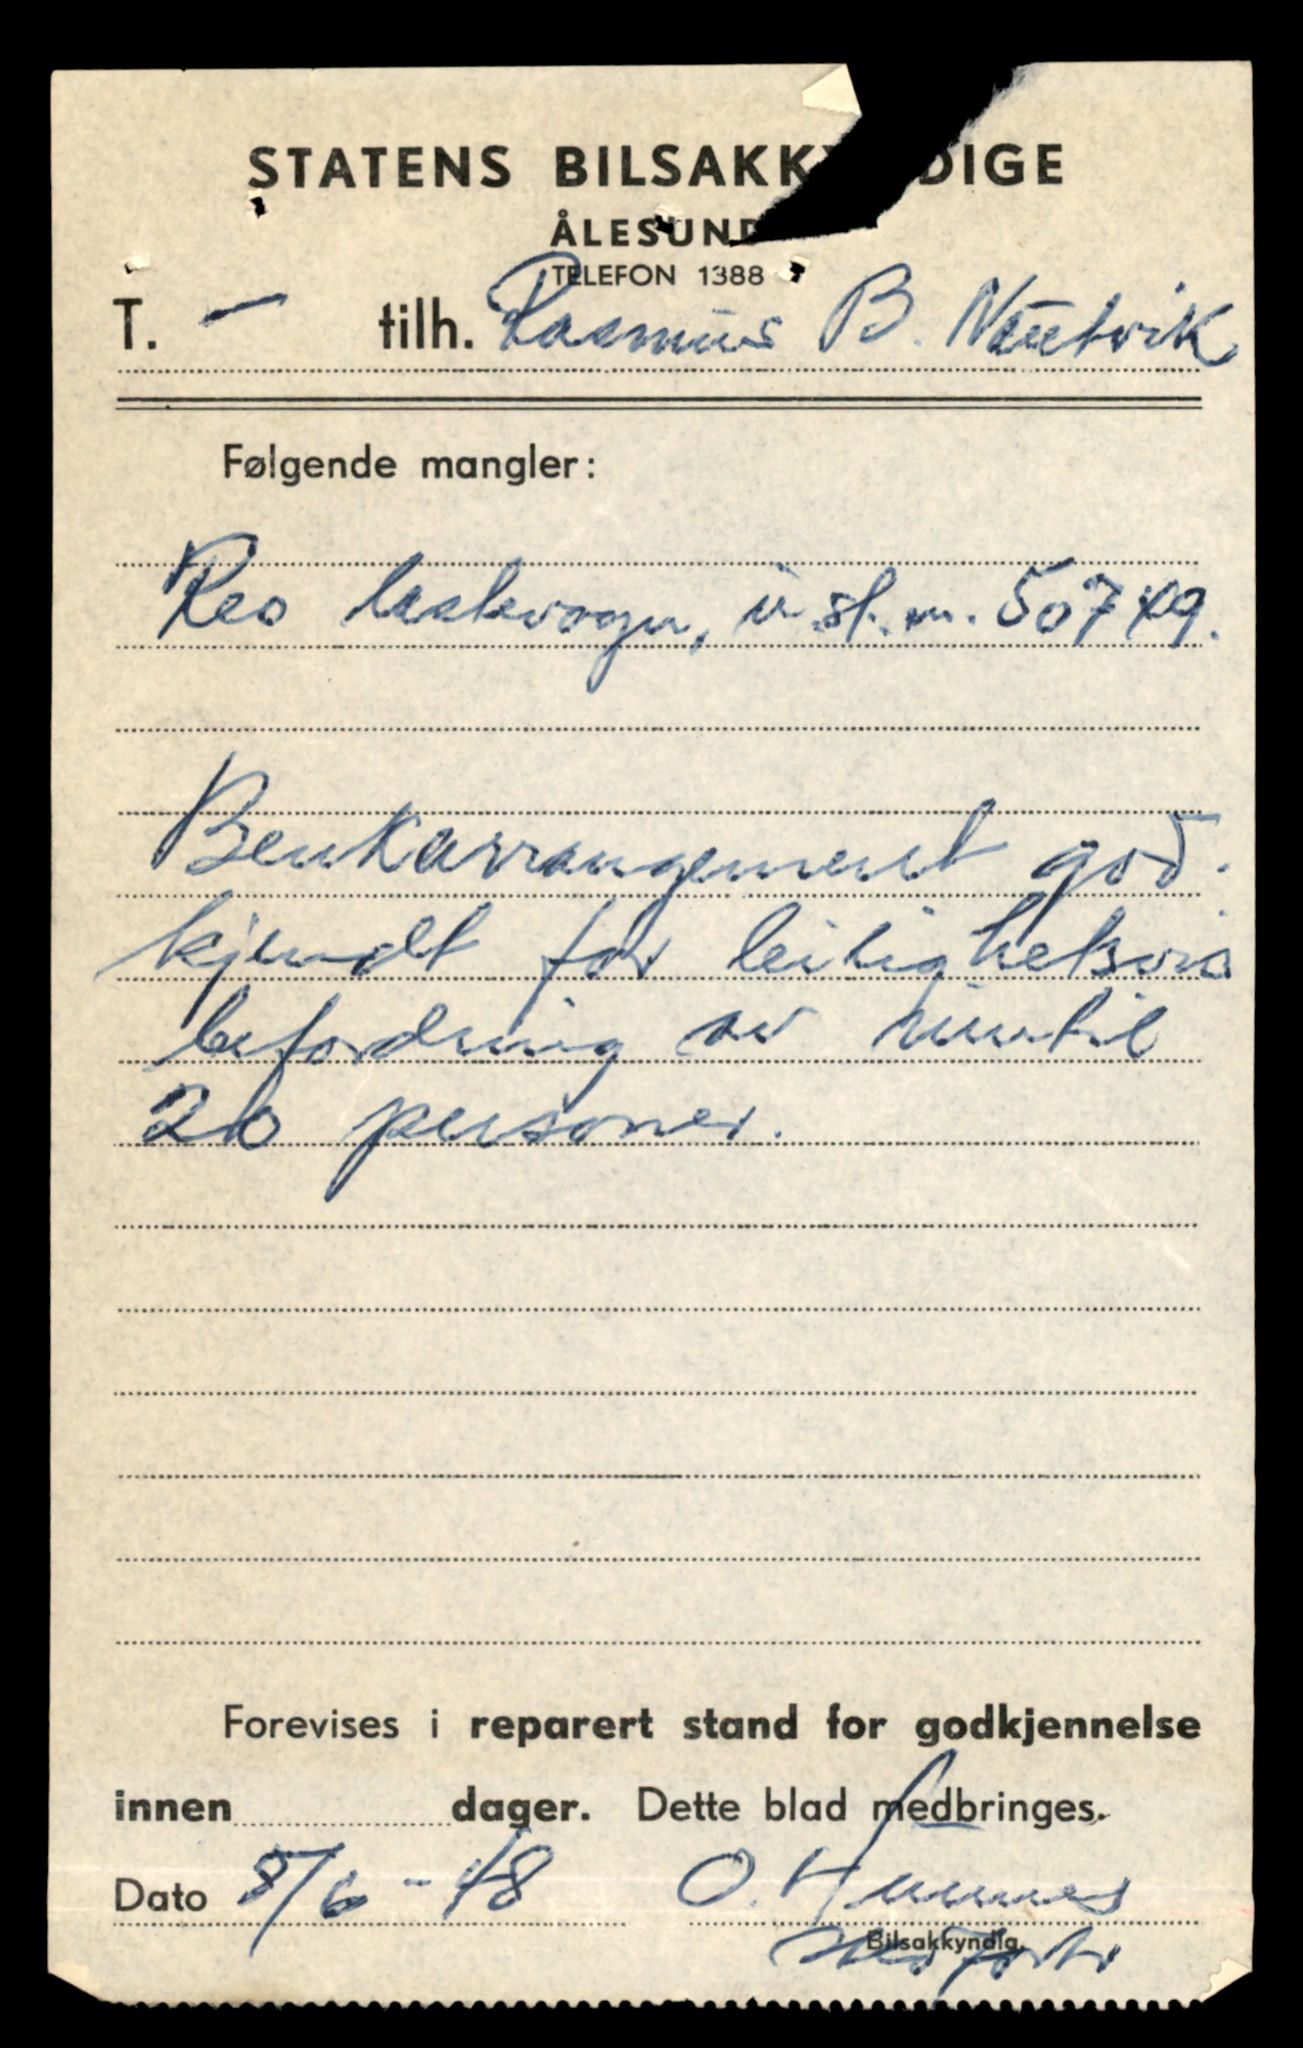 STATENS BILSAKKY DIGE
ÅLESUND
TELEFON 1388
T. – tilh. Rasmus B. Nautvik
Følgende mangler:
Reo lastevogn, u.st.m. 507 49.
Benkarrangement god-
kjendt for leilighetsvis
befordring av inntil
20 personer.
Forevises i reparert stand for godkjennelse
innen dager. Dette blad medbringes.
Dato 8/6 - 48 O. Hunnes
Bilsakkyndig.